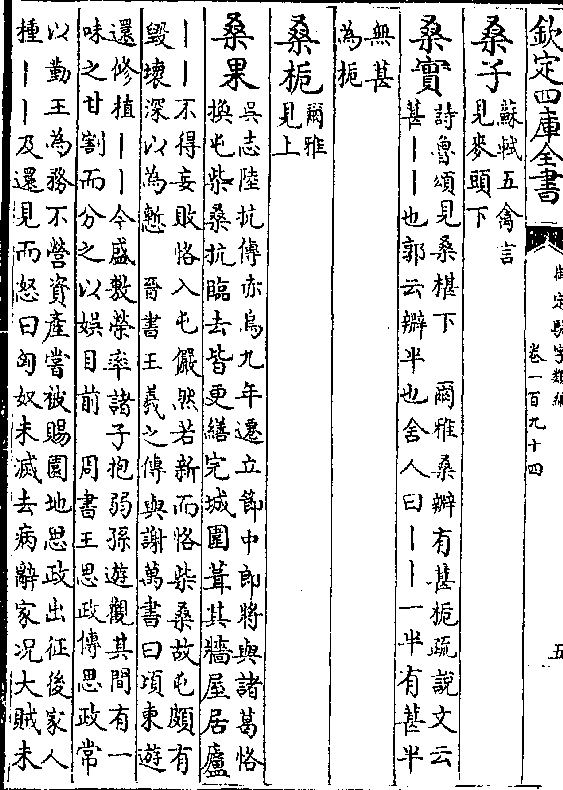 欽定四庫全書
御定駢字類編
卷一百九十四
五
桑子
蘇軾五禽言
見麥頭下
桑實
詩魯頌見桑椹下　爾雅桑辦有葚梔疏說文云
葚｜｜也郭云辦半也舍人曰｜｜一半有葚半
無葚
為梔
桑梔
爾雅
見上
桑果
吳志陸抗傳赤烏九年遷立節中郎將與諸葛恪
換屯柴桑抗臨去皆更繕完城圍葺其牆屋居廬
｜｜不得妄敗恪入屯儼然若新而恪柴桑故屯頗有
毀壞深以為慙　晉書王羲之傳與謝萬書曰頃東遊
還修植｜｜今盛敷榮率諸子抱弱孫遊觀其間有一
味之甘割而分之以娛目前　周書王思政傳思政常
以勤王為務不營資產嘗被賜園地思政出征後家人
種｜｜及還見而怒曰匈奴未滅去病辭家况大賊未